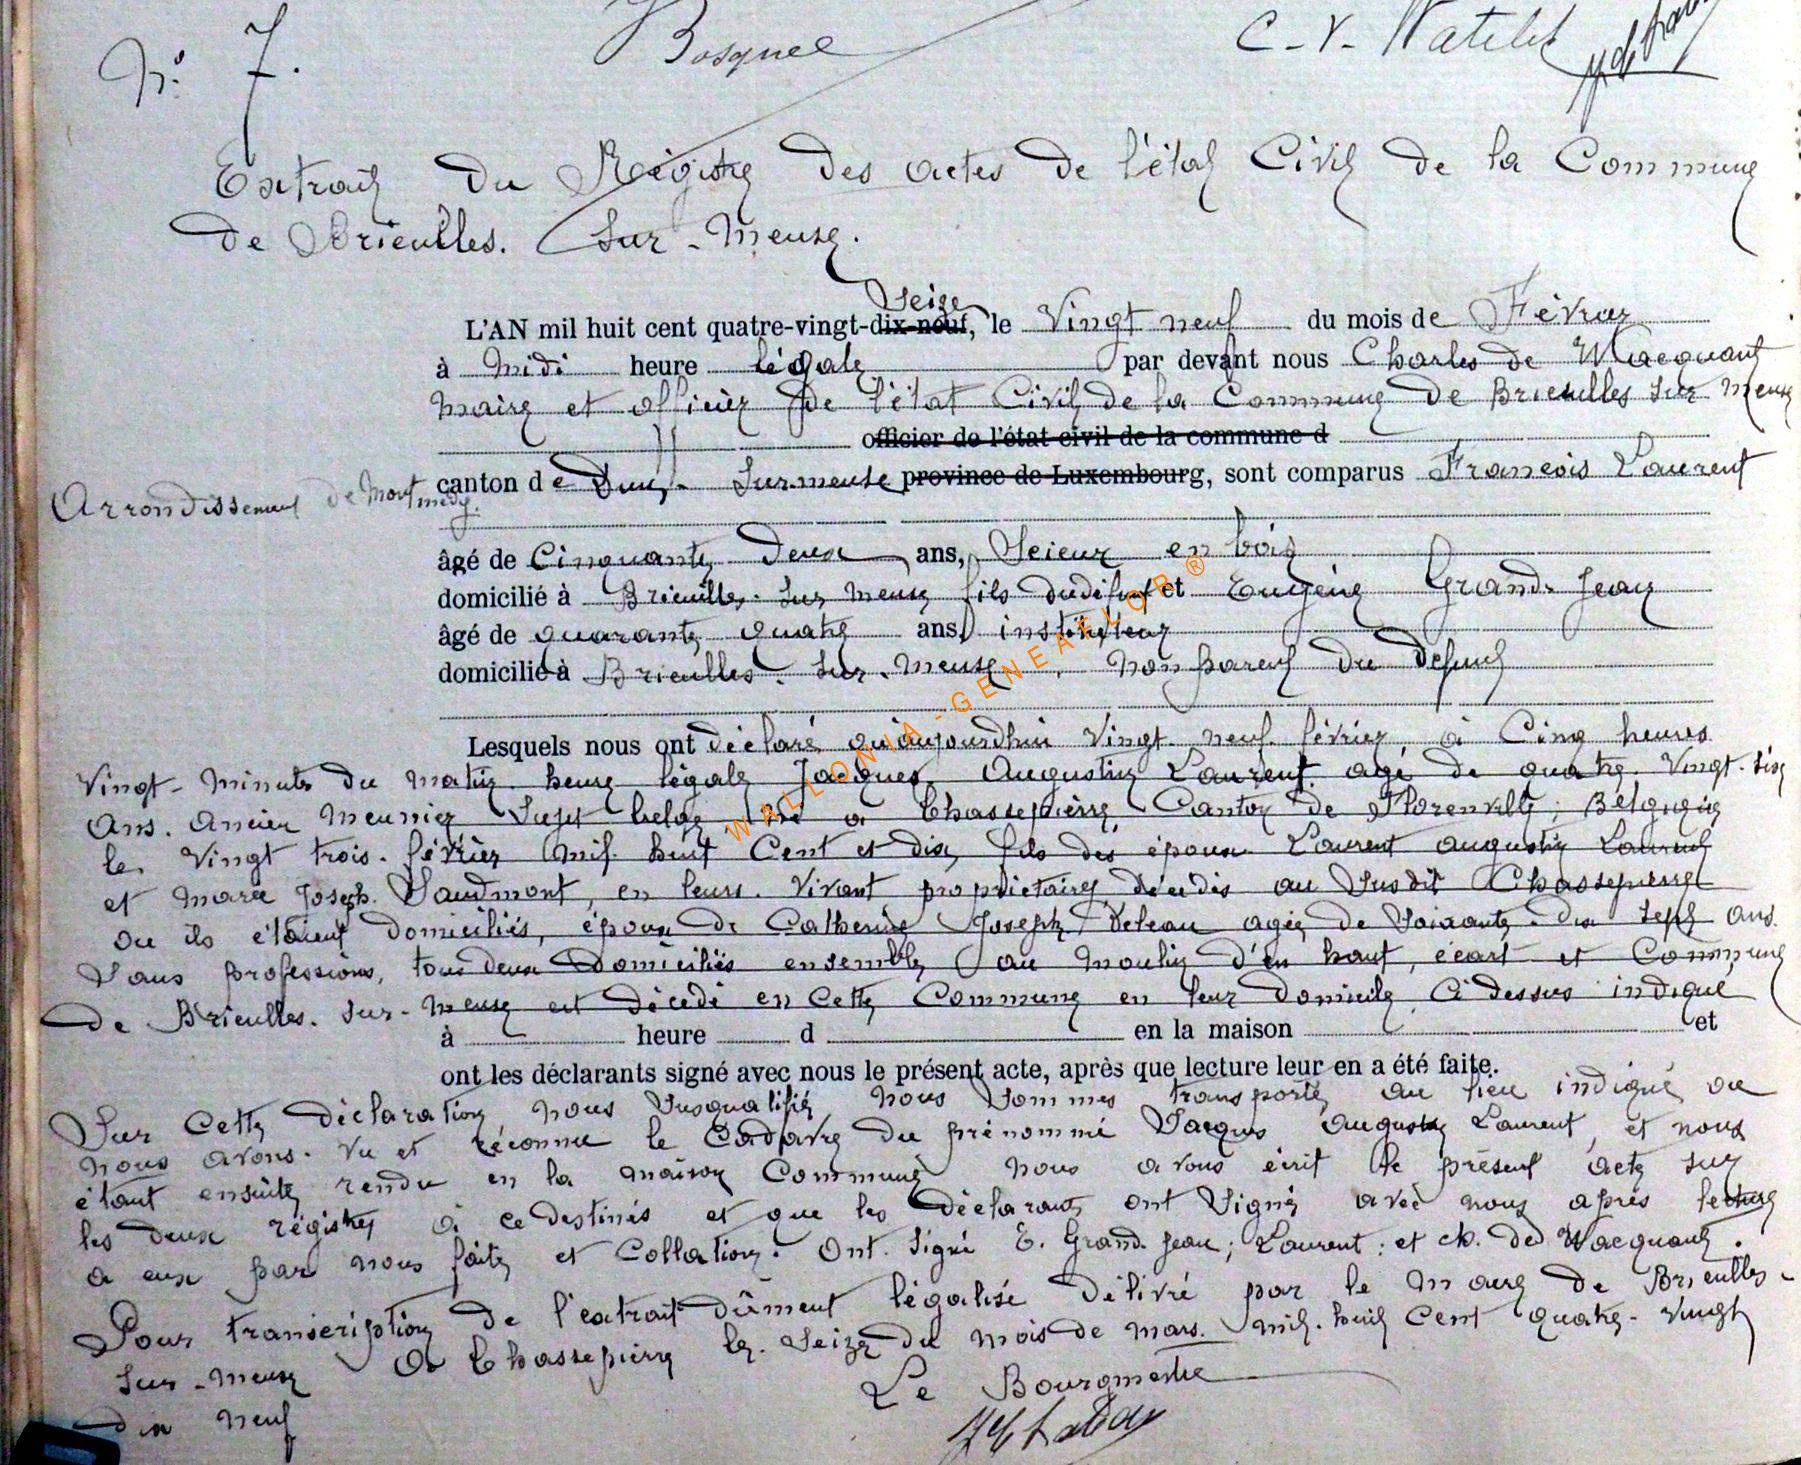 Bosquee C-V-Watelet
N° 7.
Extrait du Régistre des actes de l'état Civil de la Commune
de Brieulles. Sur-Meuse.
Seize
L'AN mil huit cent quatre-vingt-dix-neuf, le Vingt neuf du mois de Février
à Midi heure légale par devant nous Charles de Wacquant
Maire et officier de l'état Civil de la Commune de Brieulles sur Meuse
officier de l'état civil de la commune d
canton de Dun-Sur-meuse province de Luxembourg, sont comparus Francois Laurent
Arrondissement de Montmedy.
âgé de Cinquante deux ans, Scieur en bois
domicilié à Brieulles-sur Meuse fils dudéfunt et Eugène Grand-Jean
âgé de quarante quatre ans, instituteur
domicilié à Brieulles-Sur-Meuse, non parent du défunt
Lesquels nous ont déclaré qu'aujourdhui Vingt-neuf février à Cinq heures
Vingt-minutes du matin heure légale Jacques Augustin Laurent agé de quatre-Vingt-six
Ans. Ancien Meunier Sujet belge né à Chassepierre Canton de Florenville, Belgique
le Vingt trois-février mil huit Cent et dix, fils des époux Laurent Augustin Laurent
et Marie Joseph Vaudmont, en leurs Vivant propriétaires décédés au Susdit Chassepierre
ou ils étaient domiciliés, époux de Catherine Joseph Deleau agée de Soixante-dix sept ans.
Sans professions, tous deux Domiciliés ensemble au Moulin d'en haut, écart et Commune
de Brieulles-Sur-Meuse est décédé en Cette Commune en leur Domicile Ci dessus indiqué
à heure d en la maison et
ont les déclarants signé avec nous le présent acte, après que lecture leur en a été faite.
Sur Cette déclaration nous Susqualifié, nous Sommes transporté au lieu indiqué ou
nous avons vu et réconnu le Cadavre du prénommé Jacques Augustin Laurent, et nous
étant ensuite rendu en la maison Commune nous avons écrit le présent acte sur
les deux régistres à ce destinés et que les déclarants ont Signé avec nous après lecture
a eux par nous faite et Collation. Ont Signé E. Grand-Jean; Laurent; et ch. de Wacquant.
Pour transcription de l'extrait dûment légalisé délivré par le Maire de Brieulles-
Sur-Meuse A Chassepierre le Seize du mois de mars mil huit Cent quatre-Vingt
dix neuf Le Bourgmestre